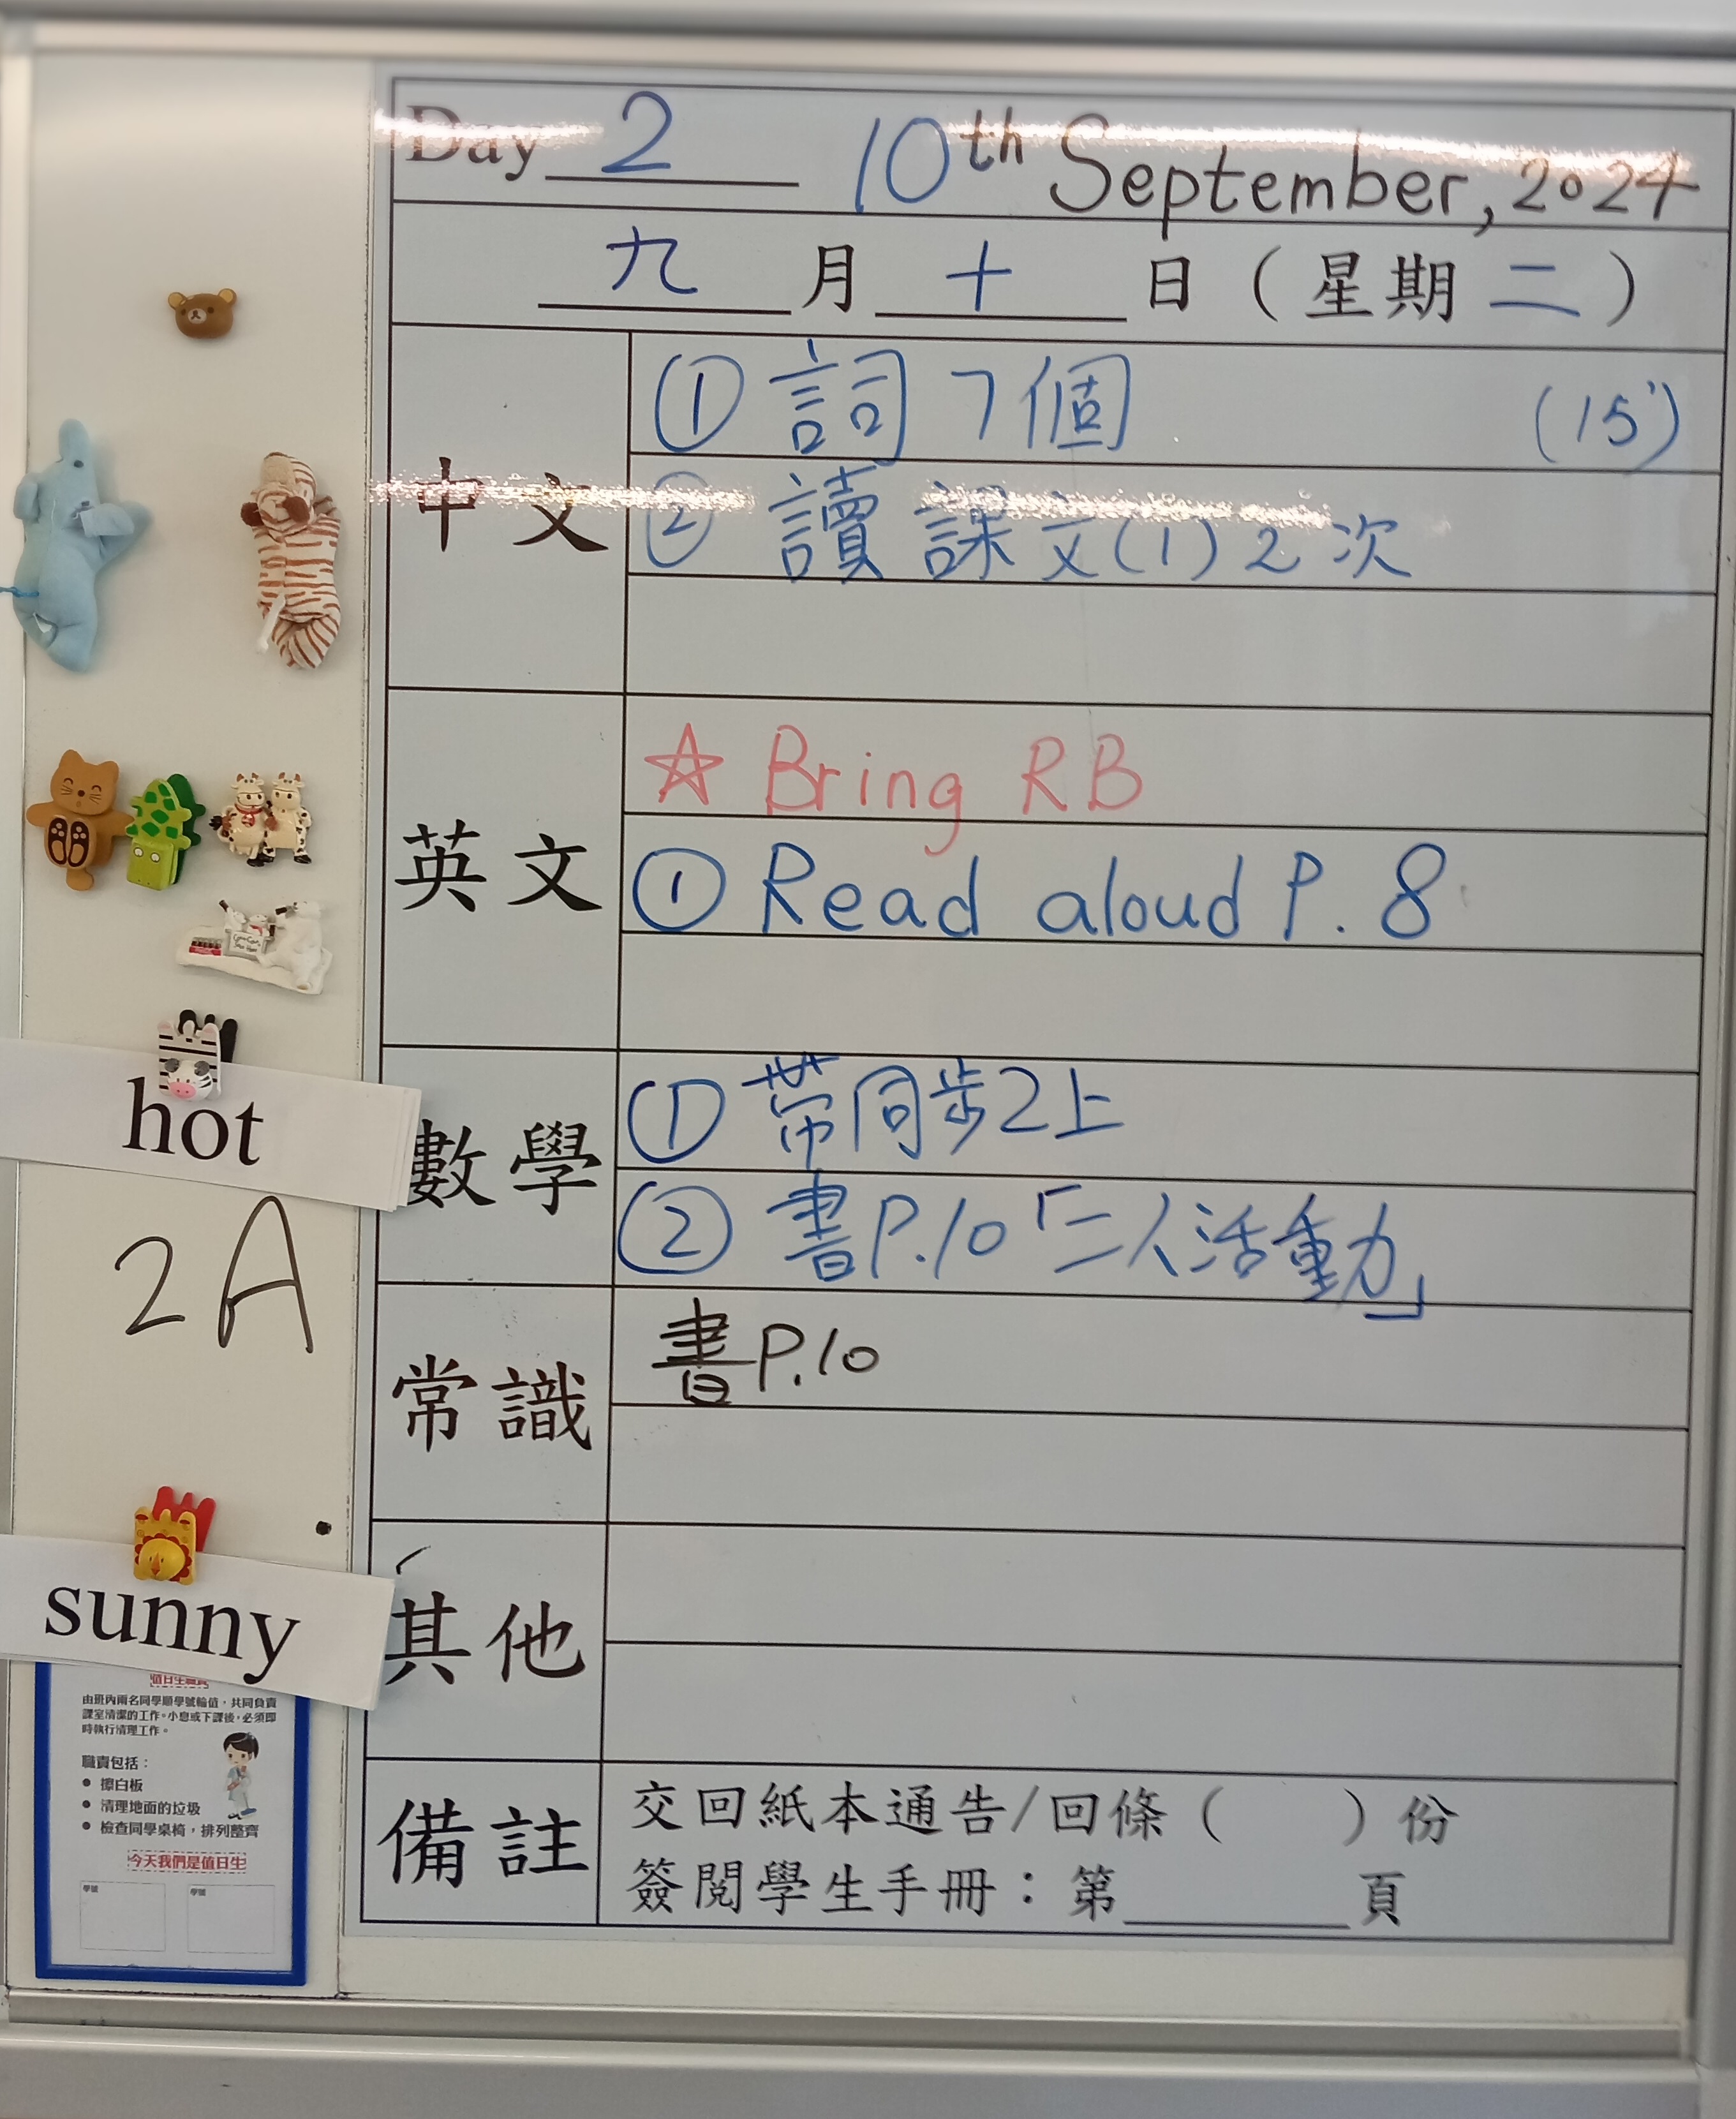 Day 2 10th September, 2024
九 月 十 日 ( 星期 二 )
中文
① 詞 7 個 (15')
② 讀 課文(1) 2 次
英文
☆ Bring RB
① Read aloud P. 8
數學
① 帶同步2上
② 書P.10「二人活動」
常識
書P.10
其他
備註
交回紙本通告/回條 ( ) 份
簽閱學生手冊：第 頁
hot
2A
sunny
值日生職責
由班內兩名同學順學號輪值，共同負責
課室清潔的工作。小息或下課後，必須即
時執行清理工作。
職責包括：
● 擦白板
● 清理地面的垃圾
● 檢查同學桌椅，排列整齊
今天我們是值日生
學號 學號